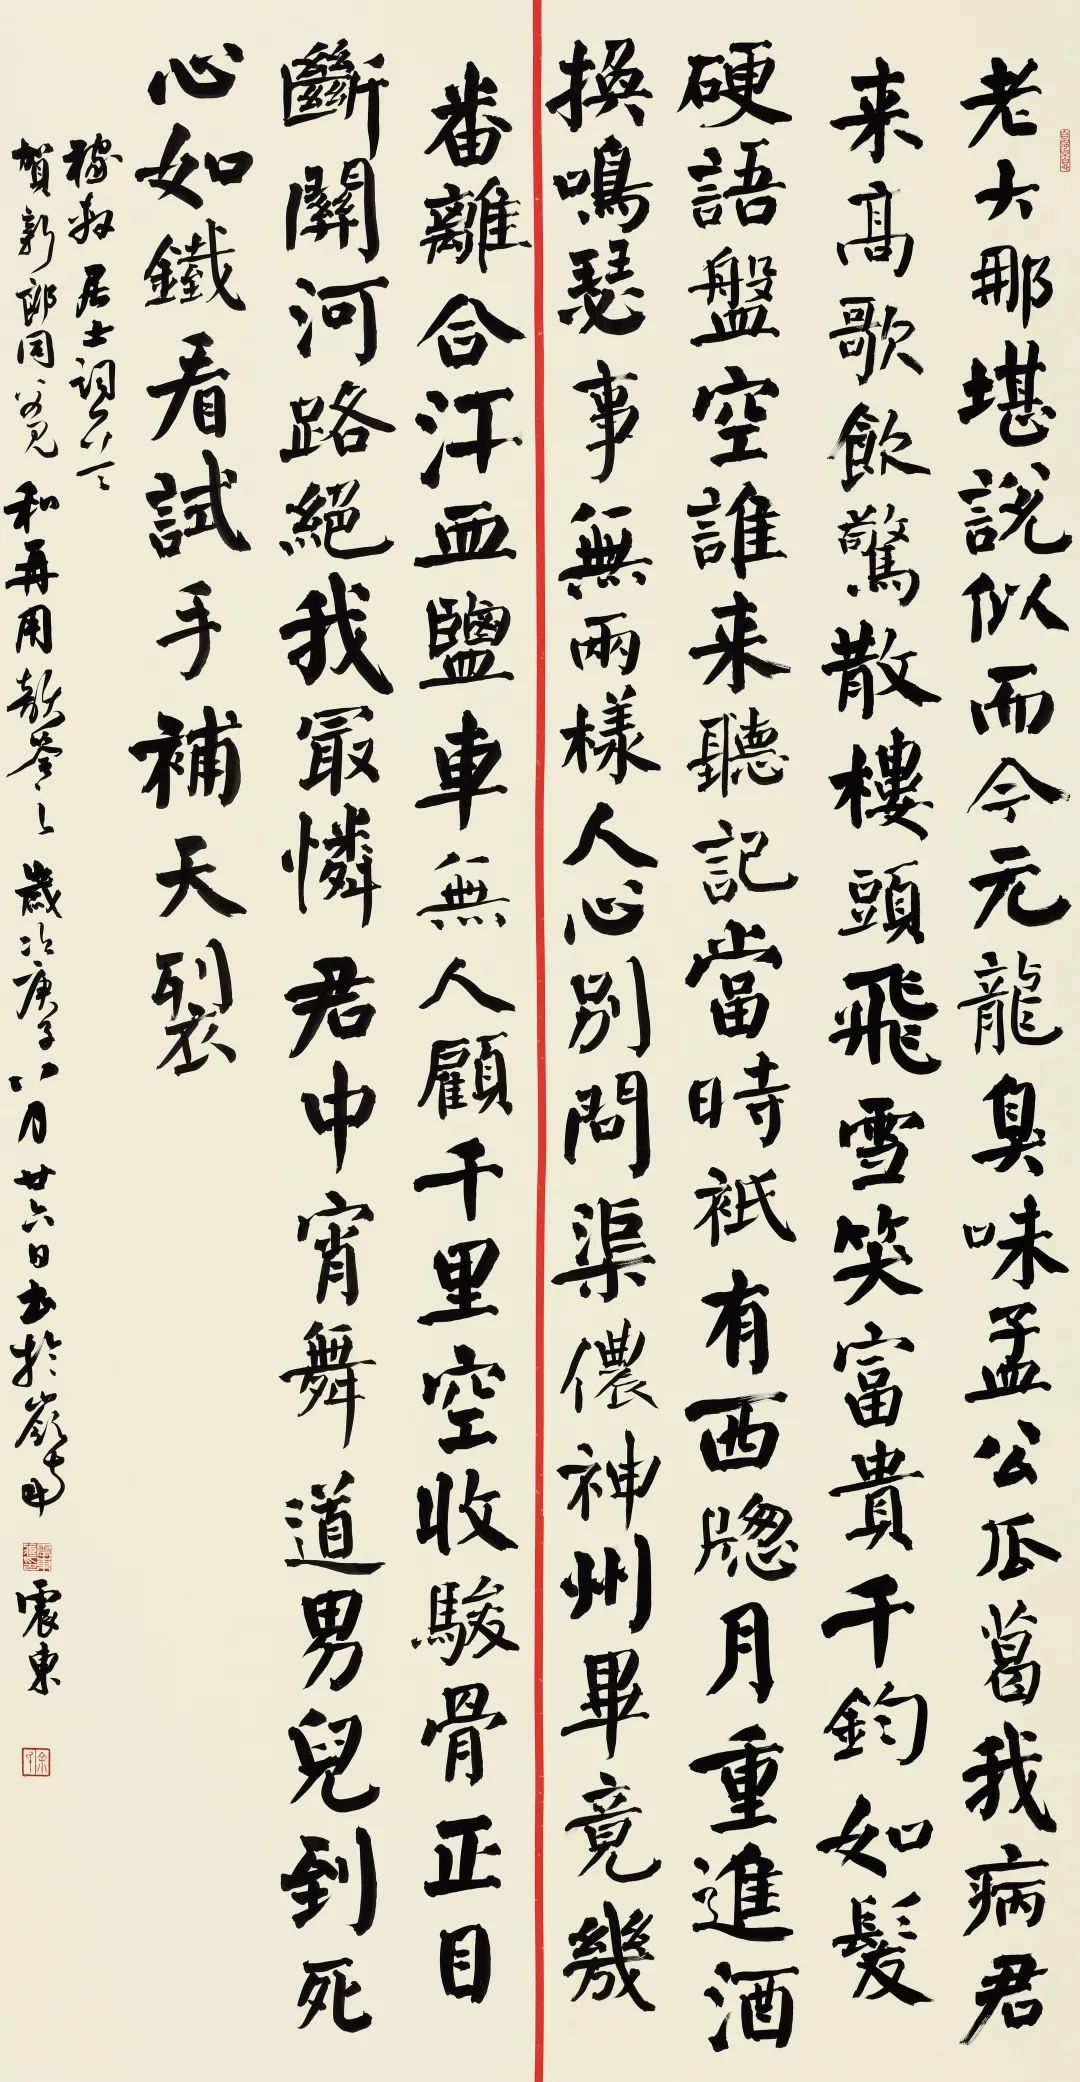 老大那堪說似而今元龍臭味孟公瓜葛我病君
来高歌飲驚散樓頭飛雪笑富貴千鈞如髮
硬語盤空誰来聽記當時祇有西窗月重進酒
換鳴瑟事無兩樣人心別問渠儂神州畢竟幾
番離合汗血鹽車無人顧千里空收駿骨正目
斷關河路絕我最憐君中宵舞道男兒到死
心如鐵看試手補天裂
稼軒居士詞
賀新郎同父見和再用韻答之歲次庚子八月廿六日書於嶺南
震東